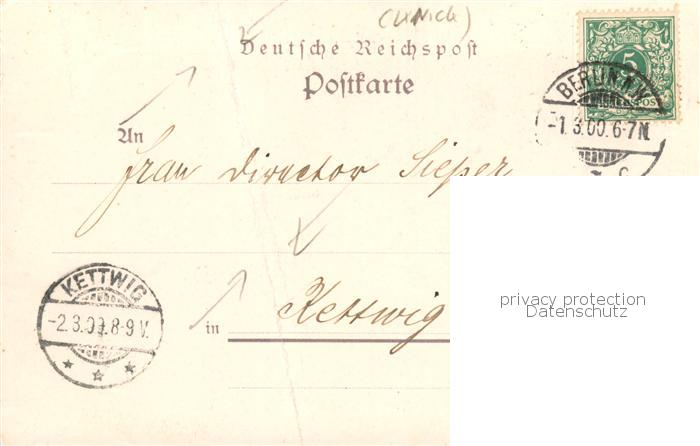 Deutsche Reichspost
Postkarte
5
BERLIN N.W.
-1.3.00.6-7N.
c
An
Frau Director Sieper
in Kettwig
KETTWIG
-2.3.00.8-9V.
privacy protection
Datenschutz